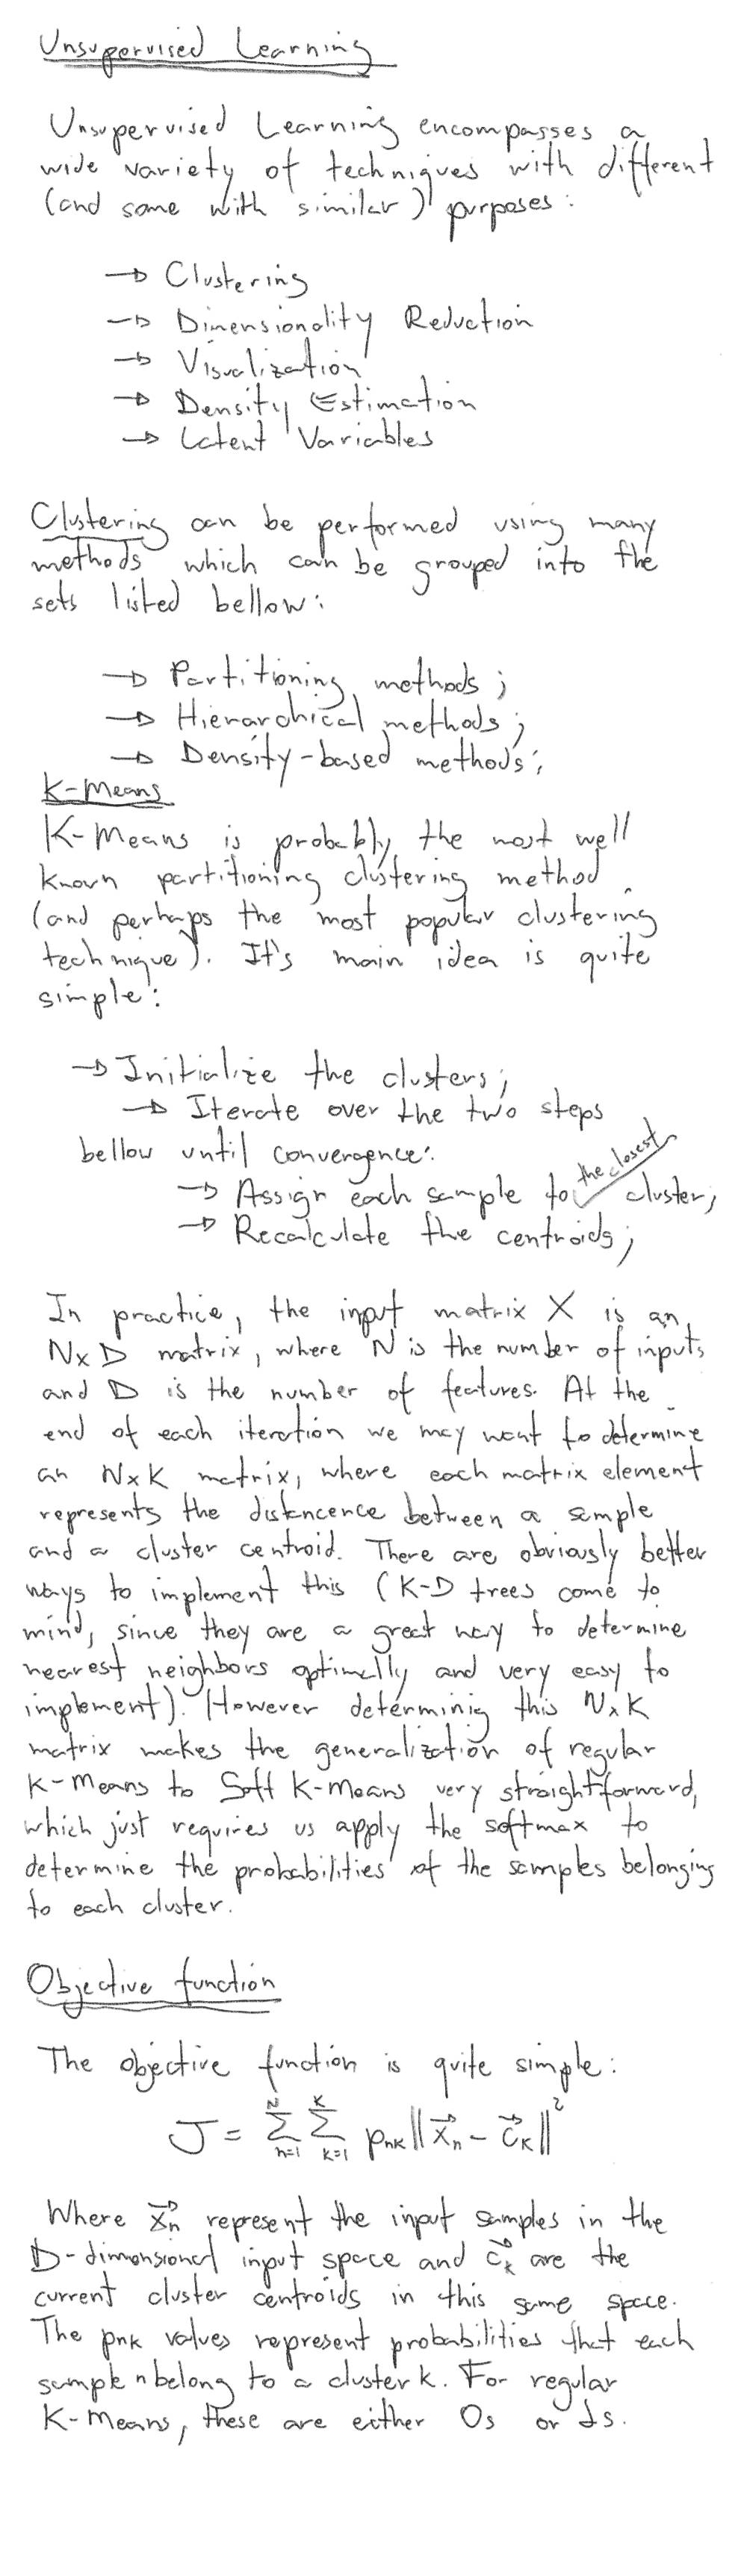 Unsupervised Learning
Unsupervised Learning encompasses a
wide variety of techniques with different
(and some with similar) purposes:
→ Clustering
→ Dimensionality Reduction
→ Visualization
→ Density Estimation
→ Latent Variables
Clustering can be performed using many
methods which can be grouped into the
sets listed bellow:
→ Partitioning methods;
→ Hierarchical methods;
→ Density-based methods;
K-Means
K-Means is probably the most well
known partitioning clustering method
(and perhaps the most popular clustering
technique). It's main idea is quite
simple:
→ Initialize the clusters;
→ Iterate over the two steps
bellow until convergence:
→ Assign each sample to the closest cluster;
→ Recalculate the centroids;
In practice, the input matrix X is an
NxD matrix, where N is the number of inputs
and D is the number of features. At the
end of each iteration we may want to determine
an NxK matrix, where each matrix element
represents the distancence between a sample
and a cluster centroid. There are obviously better
ways to implement this (K-D trees come to
mind, since they are a great way to determine
nearest neighbors optimally and very easy to
implement). However determinig this NxK
matrix makes the generalization of regular
K-Means to Soft K-Means very straightforward,
which just requires us apply the softmax to
determine the probabilities of the samples belonging
to each cluster.
Objective function
The objective function is quite simple:
J = \sum_{n=1}^{N} \sum_{k=1}^{K} p_{nk} ||\vec{x}_n - \vec{c}_k||^2
Where \vec{x}_n represent the input samples in the
D-dimensional input space and \vec{c}_k are the
current cluster centroids in this same space.
The p_{nk} values represent probabilities that each
sample n belong to a cluster k. For regular
K-Means, these are either 0s or 1s.